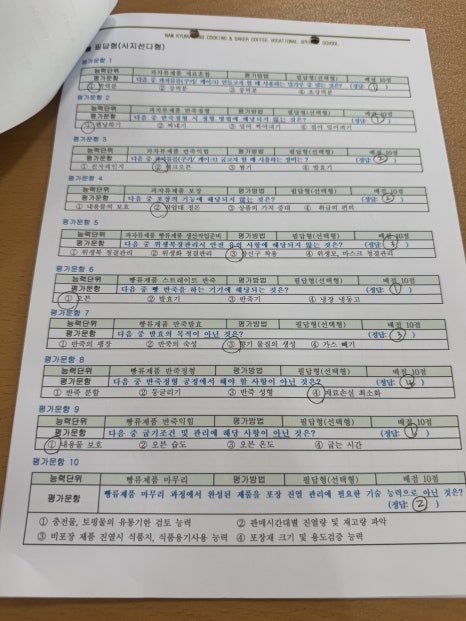 NAM KYUNG COOKING & BAKER COFFEE VOCATIONAL SCHOOL
■ 필답형(사지선다형)
평가문항 1
능력단위 과자류제품 재료혼합 평가방법 필답형(선택형) 배점 10점
평가문항 다음 중 과자류 만들고자 할 때 사용하는 것은? (정답: 1 )
① 박력분 ② 강력분 ③ 중력분 ④ 초강력분
평가문항 2
능력단위 과자류제품 반죽정형 평가방법 필답형(선택형) 배점 10점
평가문항 다음 중 반죽정형 시 정형 방법에 해당되지 않는 것은? (정답: 1 )
① 팬닝하기 ② 짜내기 ③ 밀어 찍어내기 ④ 접어 밀어펴기
평가문항 3
능력단위 과자류제품 반죽익힘 평가방법 필답형(선택형) 배점 10점
평가문항 다음 중 과자류 굽고자 할 때 사용하는 장비는? (정답: 2 )
① 전자레인지 ② 데크오븐 ③ 찜기 ④ 발효기
평가문항 4
능력단위 과자류제품 포장 평가방법 필답형(선택형) 배점 10점
평가문항 다음 중 포장의 기능에 해당되지 않는 것은? (정답: 2 )
① 내용물의 보호 ② 작업대 정돈 ③ 상품의 가치 증대 ④ 취급의 편의
평가문항 5
능력단위 과자류제품 빵류제품 생산작업준비 평가방법 필답형(선택형) 배점 10점
평가문항 다음 중 위생복장관리시 안전 유의 사항에 해당되지 않는 것은? (정답: 3 )
① 위생복 청결관리 ② 위생화 청결관리 ③ 장신구 착용 ④ 위생모, 마스크 청결관리
평가문항 6
능력단위 빵류제품 스트레이트 반죽 평가방법 필답형(선택형) 배점 10점
평가문항 다음 중 빵 반죽을 하는 기기에 해당되는 것은? (정답: 1 )
① 오븐 ② 발효기 ③ 반죽기 ④ 냉장 냉동고
평가문항 7
능력단위 빵류제품 반죽발효 평가방법 필답형(선택형) 배점 10점
평가문항 다음 중 발효의 목적이 아닌 것은? (정답: 3 )
① 반죽의 팽창 ② 반죽의 숙성 ③ 향기 물질의 생성 ④ 가스 빼기
평가문항 8
능력단위 빵류제품 반죽정형 평가방법 필답형(선택형) 배점 10점
평가문항 다음 중 반죽정형 공정에서 해야 할 사항이 아닌 것은? (정답: 4 )
① 반죽 분할 ② 둥글리기 ③ 반죽 성형 ④ 재료손실 최소화
평가문항 9
능력단위 빵류제품 반죽익힘 평가방법 필답형(선택형) 배점 10점
평가문항 다음 중 굽기조건 및 관리에 해당 사항이 아닌 것은? (정답: 1 )
① 내용물 보호 ② 오븐 습도 ③ 오븐 온도 ④ 굽는 시간
평가문항 10
능력단위 빵류제품 마무리 평가방법 필답형(선택형) 배점 10점
평가문항 빵류제품 마무리 과정에서 완성된 제품을 포장 진열 관리에 필요한 기술 능력으로 아닌 것은?
(정답: 2 )
① 충전물, 토핑물의 유통기한 검토 능력 ② 판매시간대별 진열량 및 재고량 파악
③ 비포장 제품 진열시 식품지, 식품용기사용 능력 ④ 포장재 크기 및 용도검증 능력